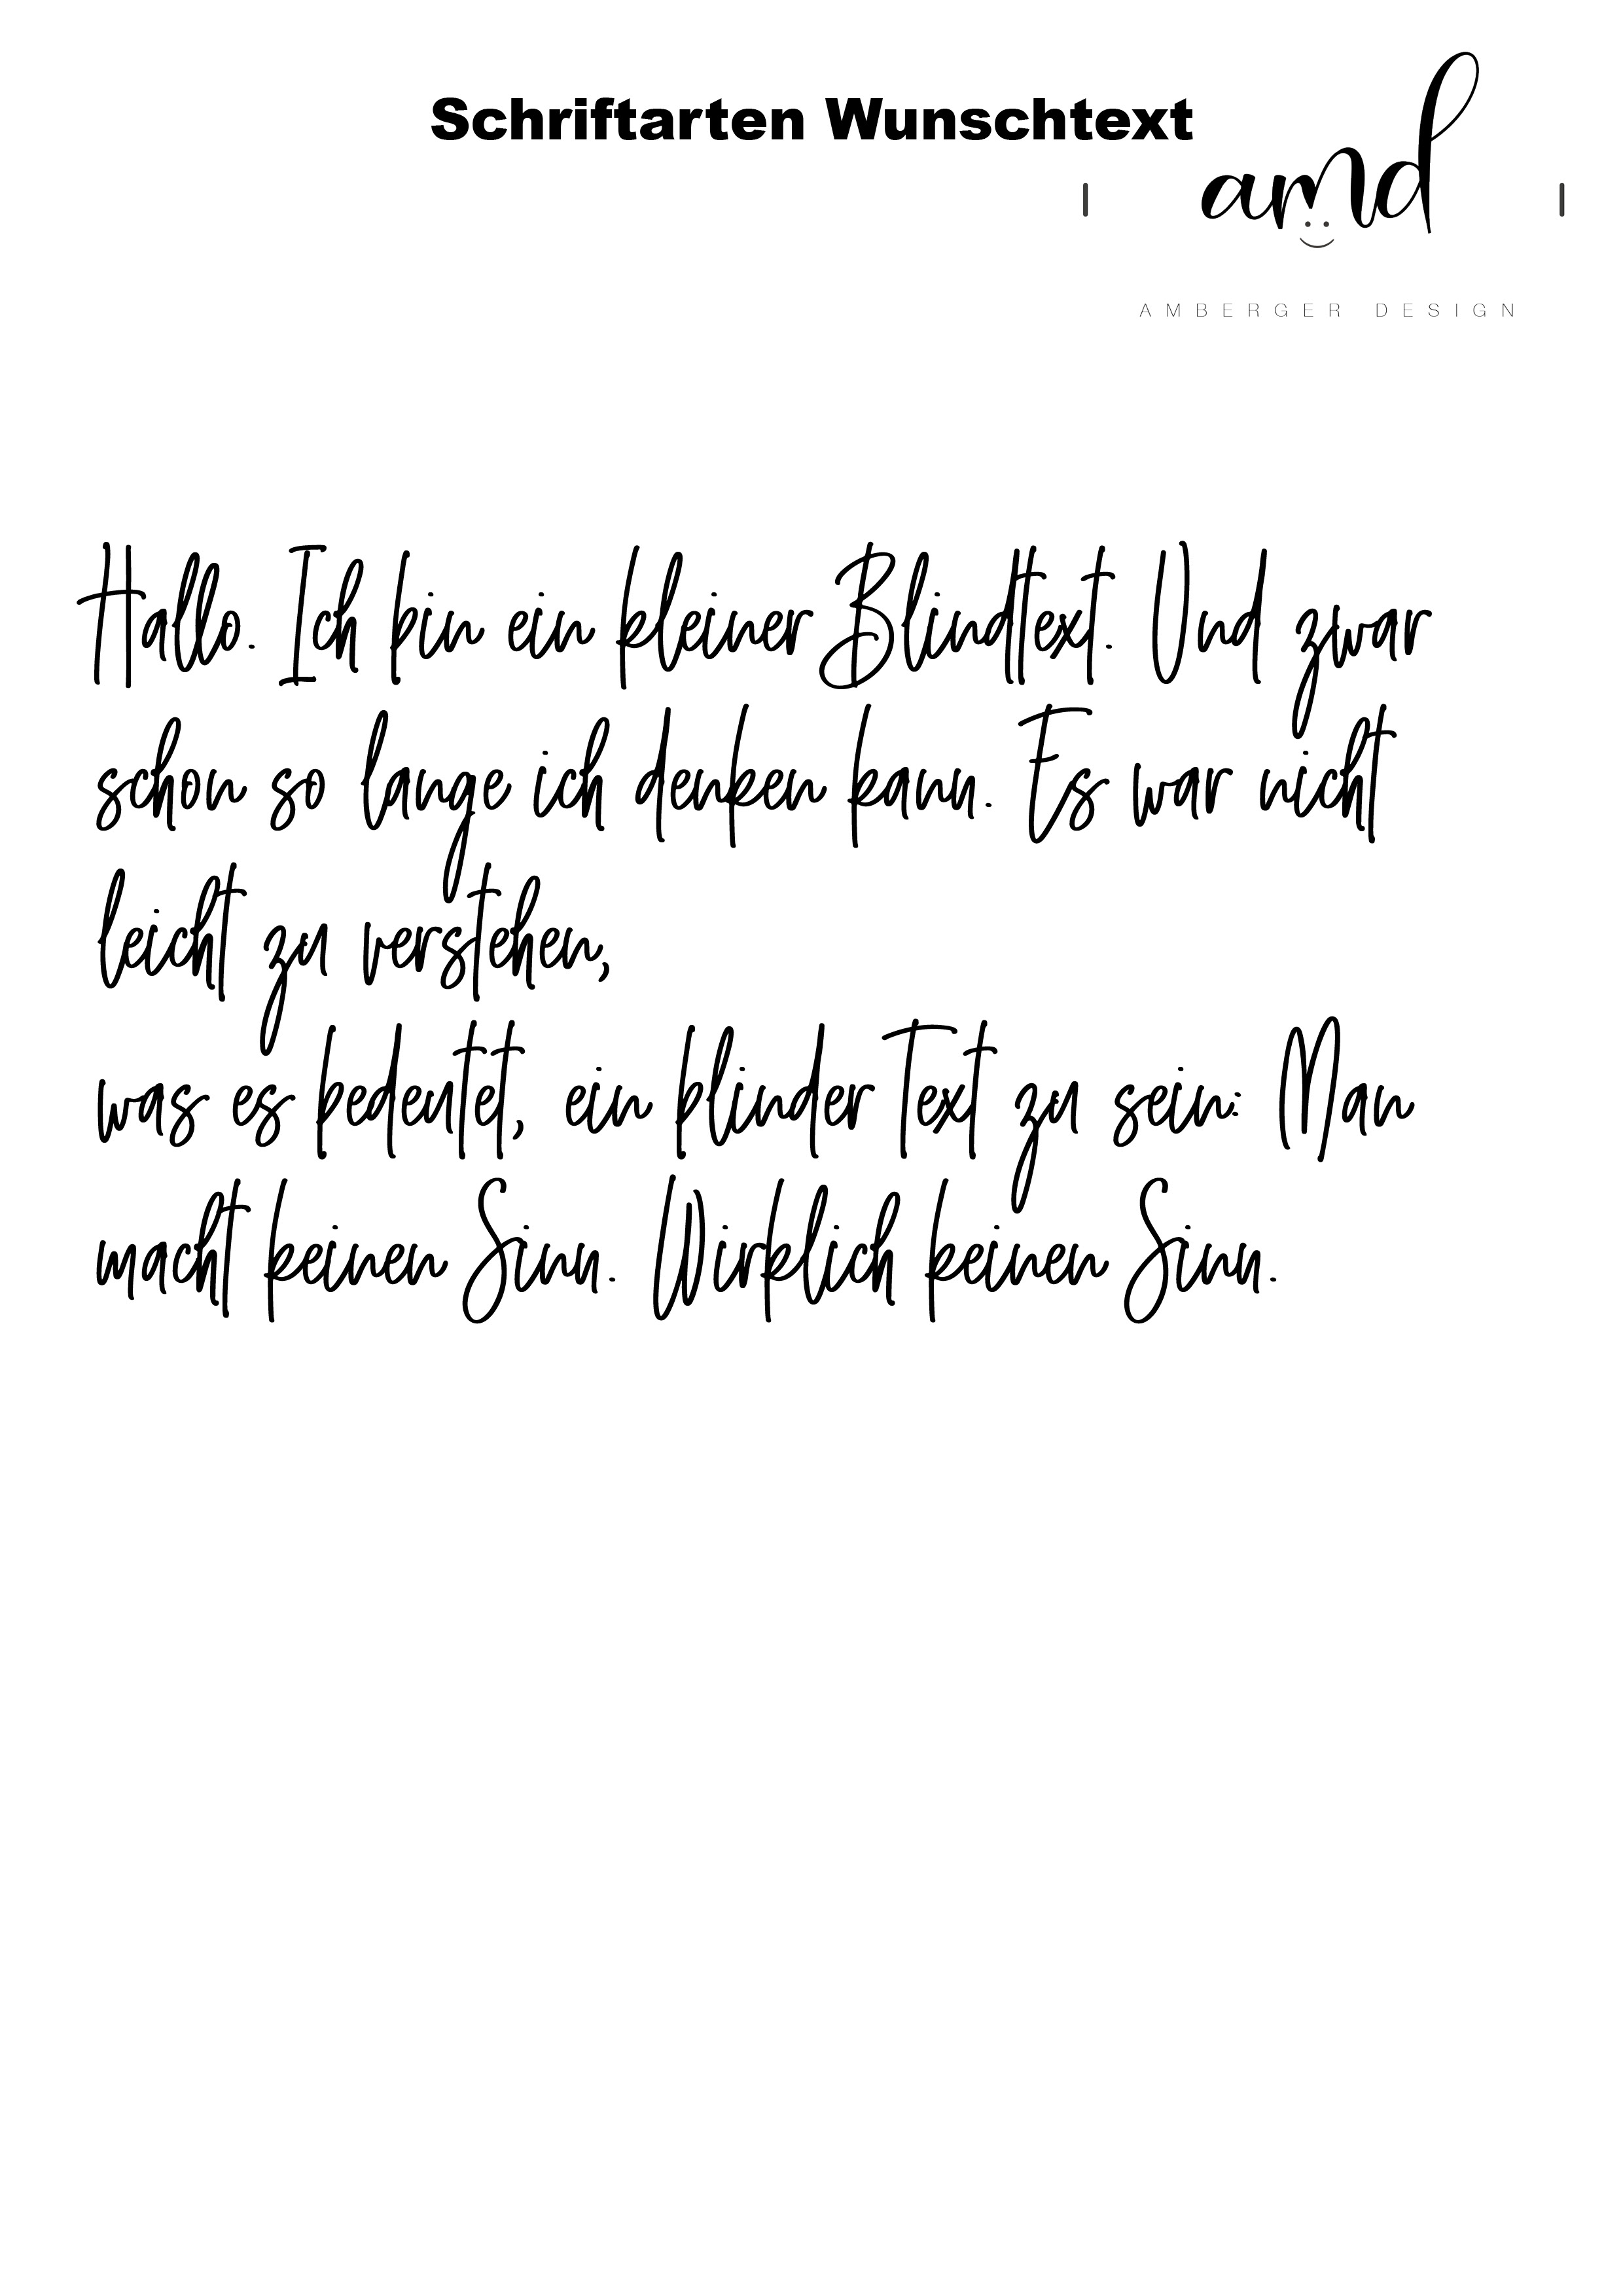 Schriftarten Wunschtext
amd
AMBERGER DESIGN
Hallo. Ich bin ein kleiner Blindtext. Und zwar
schon so lange ich denken kann. Es war nicht
leicht zu verstehen,
was es bedeutet, ein blinder Text zu sein: Man
macht keinen Sinn. Wirklich keinen Sinn.